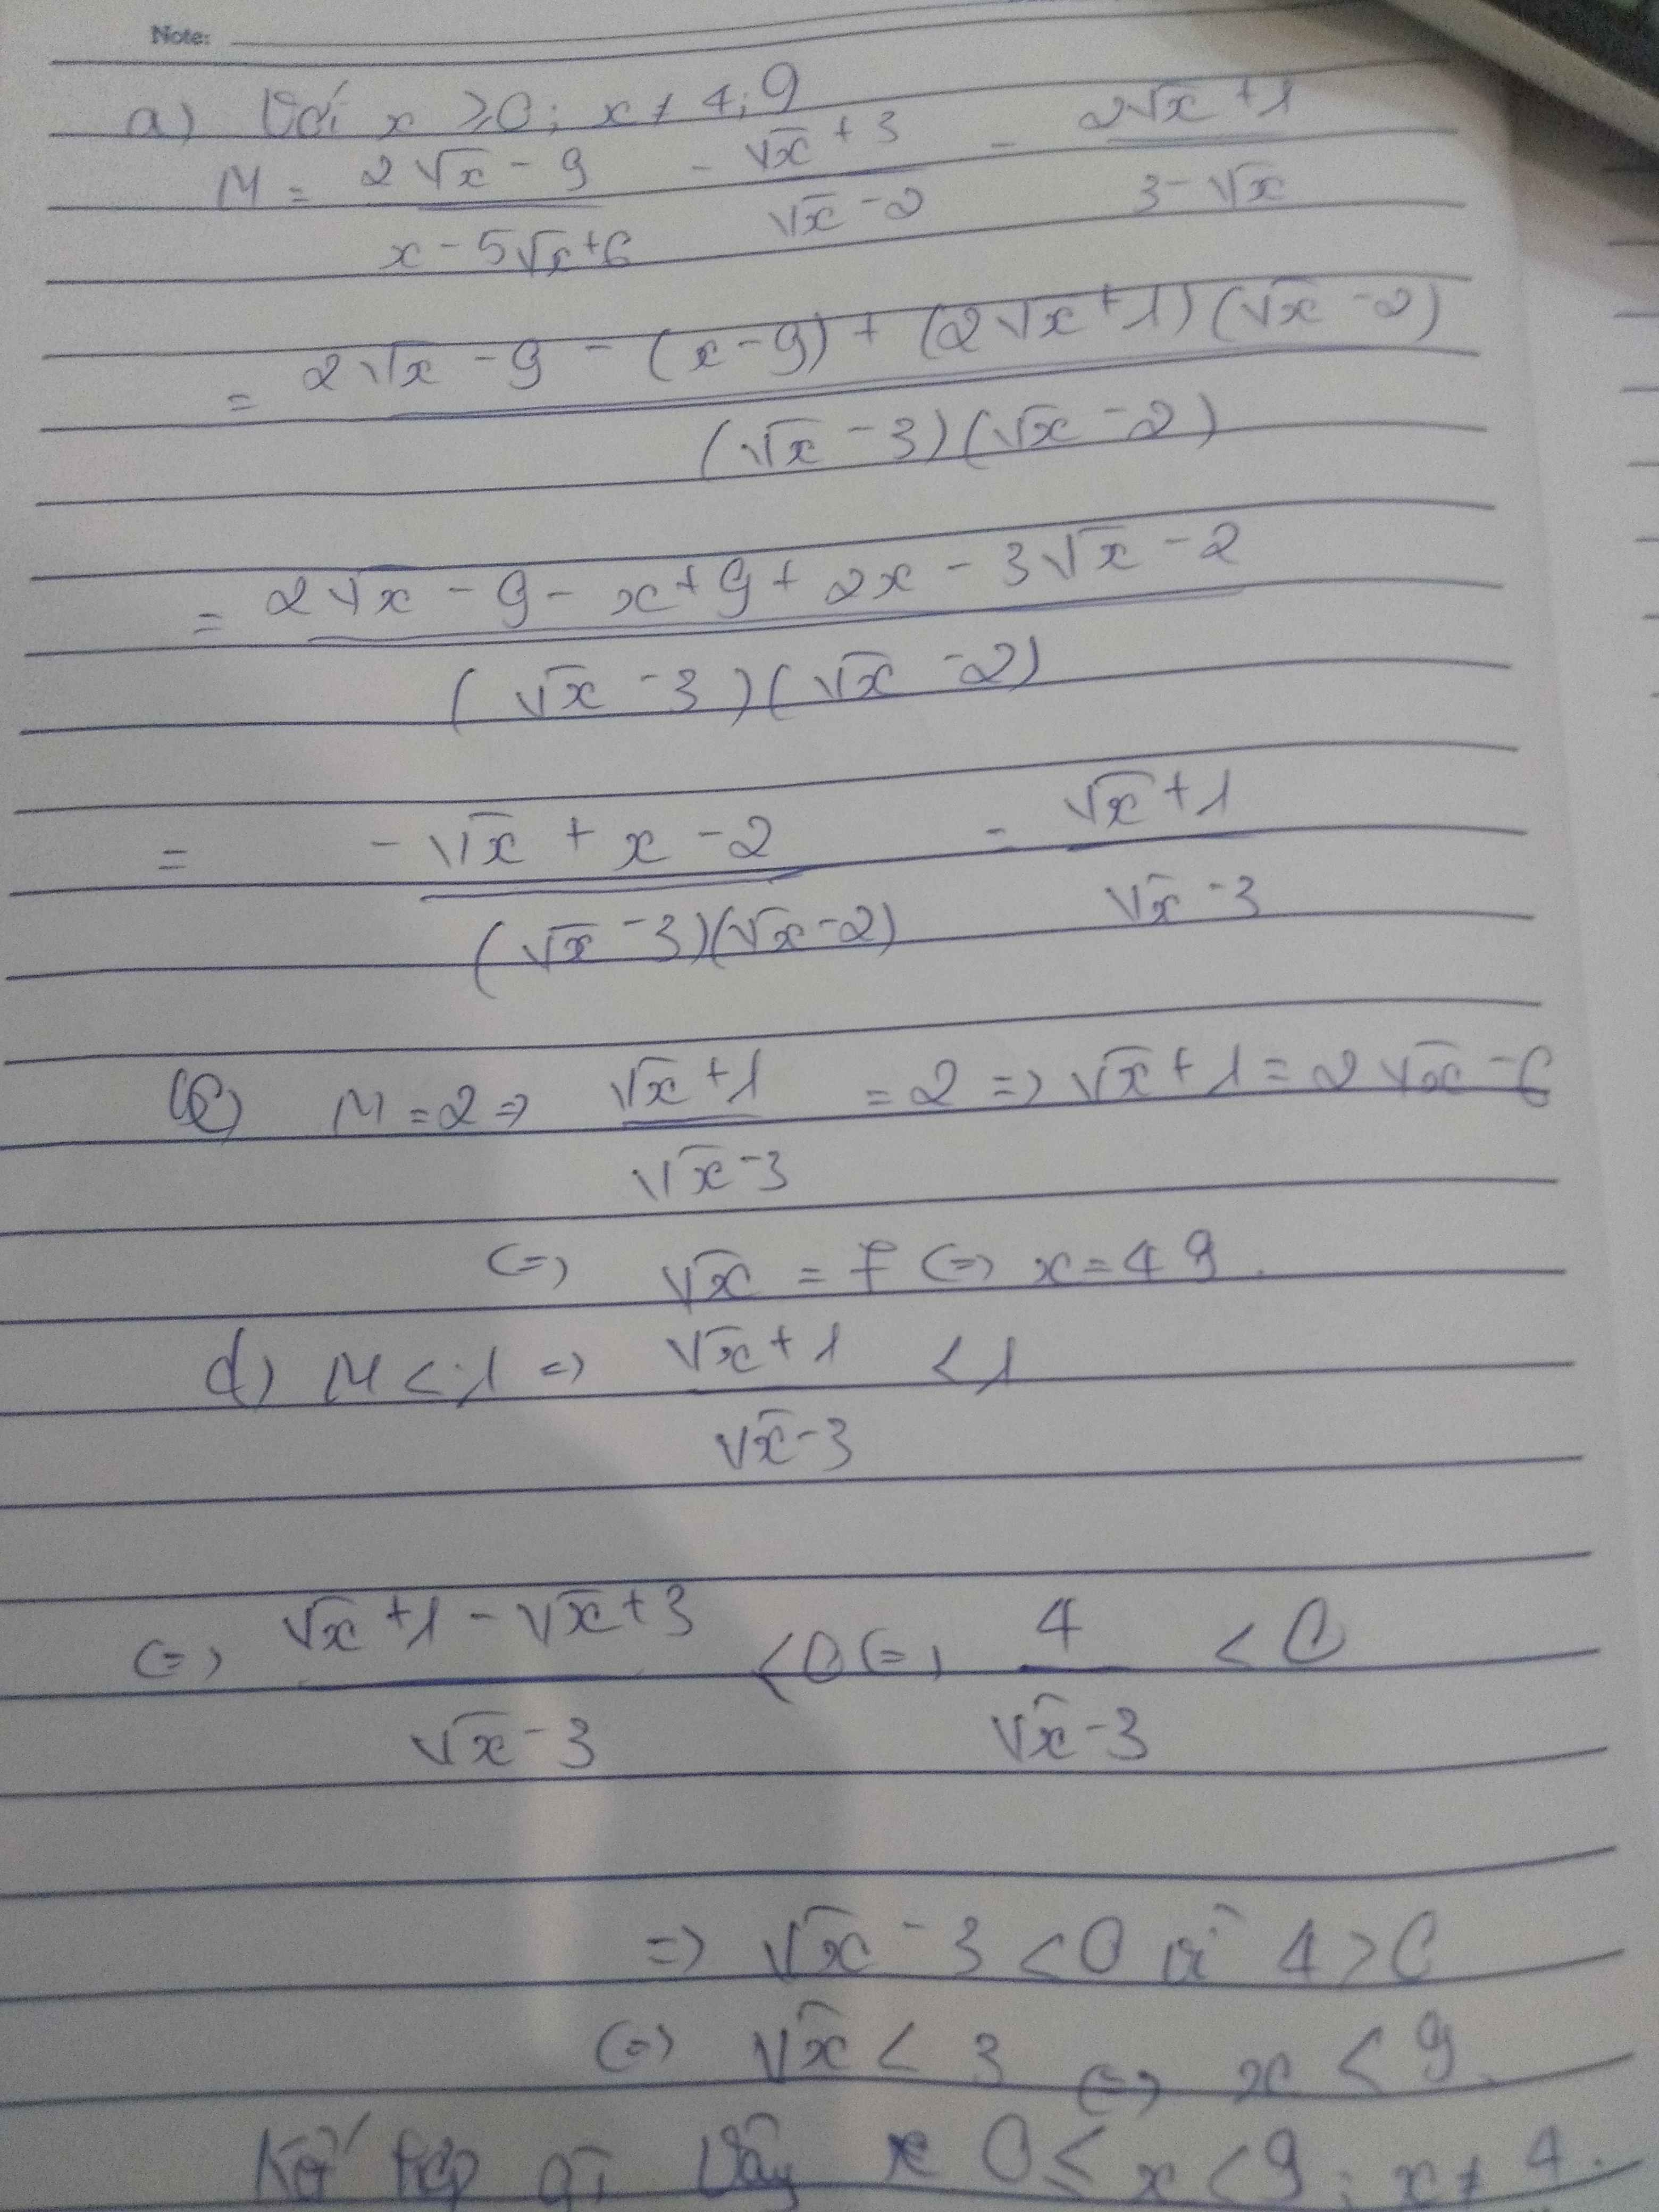 Note:
a) Với x ≥ 0; x ≠ 4; 9
M = (2√x - 9)/(x - 5√x + 6) - (√x + 3)/(√x - 2) - (2√x + 1)/(3 - √x)
= (2√x - 9 - (x - 9) + (2√x + 1)(√x - 2))/((√x - 3)(√x - 2))
= (2√x - 9 - x + 9 + 2x - 3√x - 2)/((√x - 3)(√x - 2))
= (-√x + x - 2)/((√x - 3)(√x - 2)) = (√x + 1)/(√x - 3)
M = 2 => (√x + 1)/(√x - 3) = 2 => √x + 1 = 2√x - 6
<=> √x = 7 <=> x = 49.
d) M < 1 => (√x + 1)/(√x - 3) < 1
<=> (√x + 1 - √x + 3)/(√x - 3) < 0 <=> 4/(√x - 3) < 0
=> √x - 3 < 0 vì 4 > 0
<=> √x < 3 <=> x < 9.
Vậy 0 ≤ x < 9; x ≠ 4.